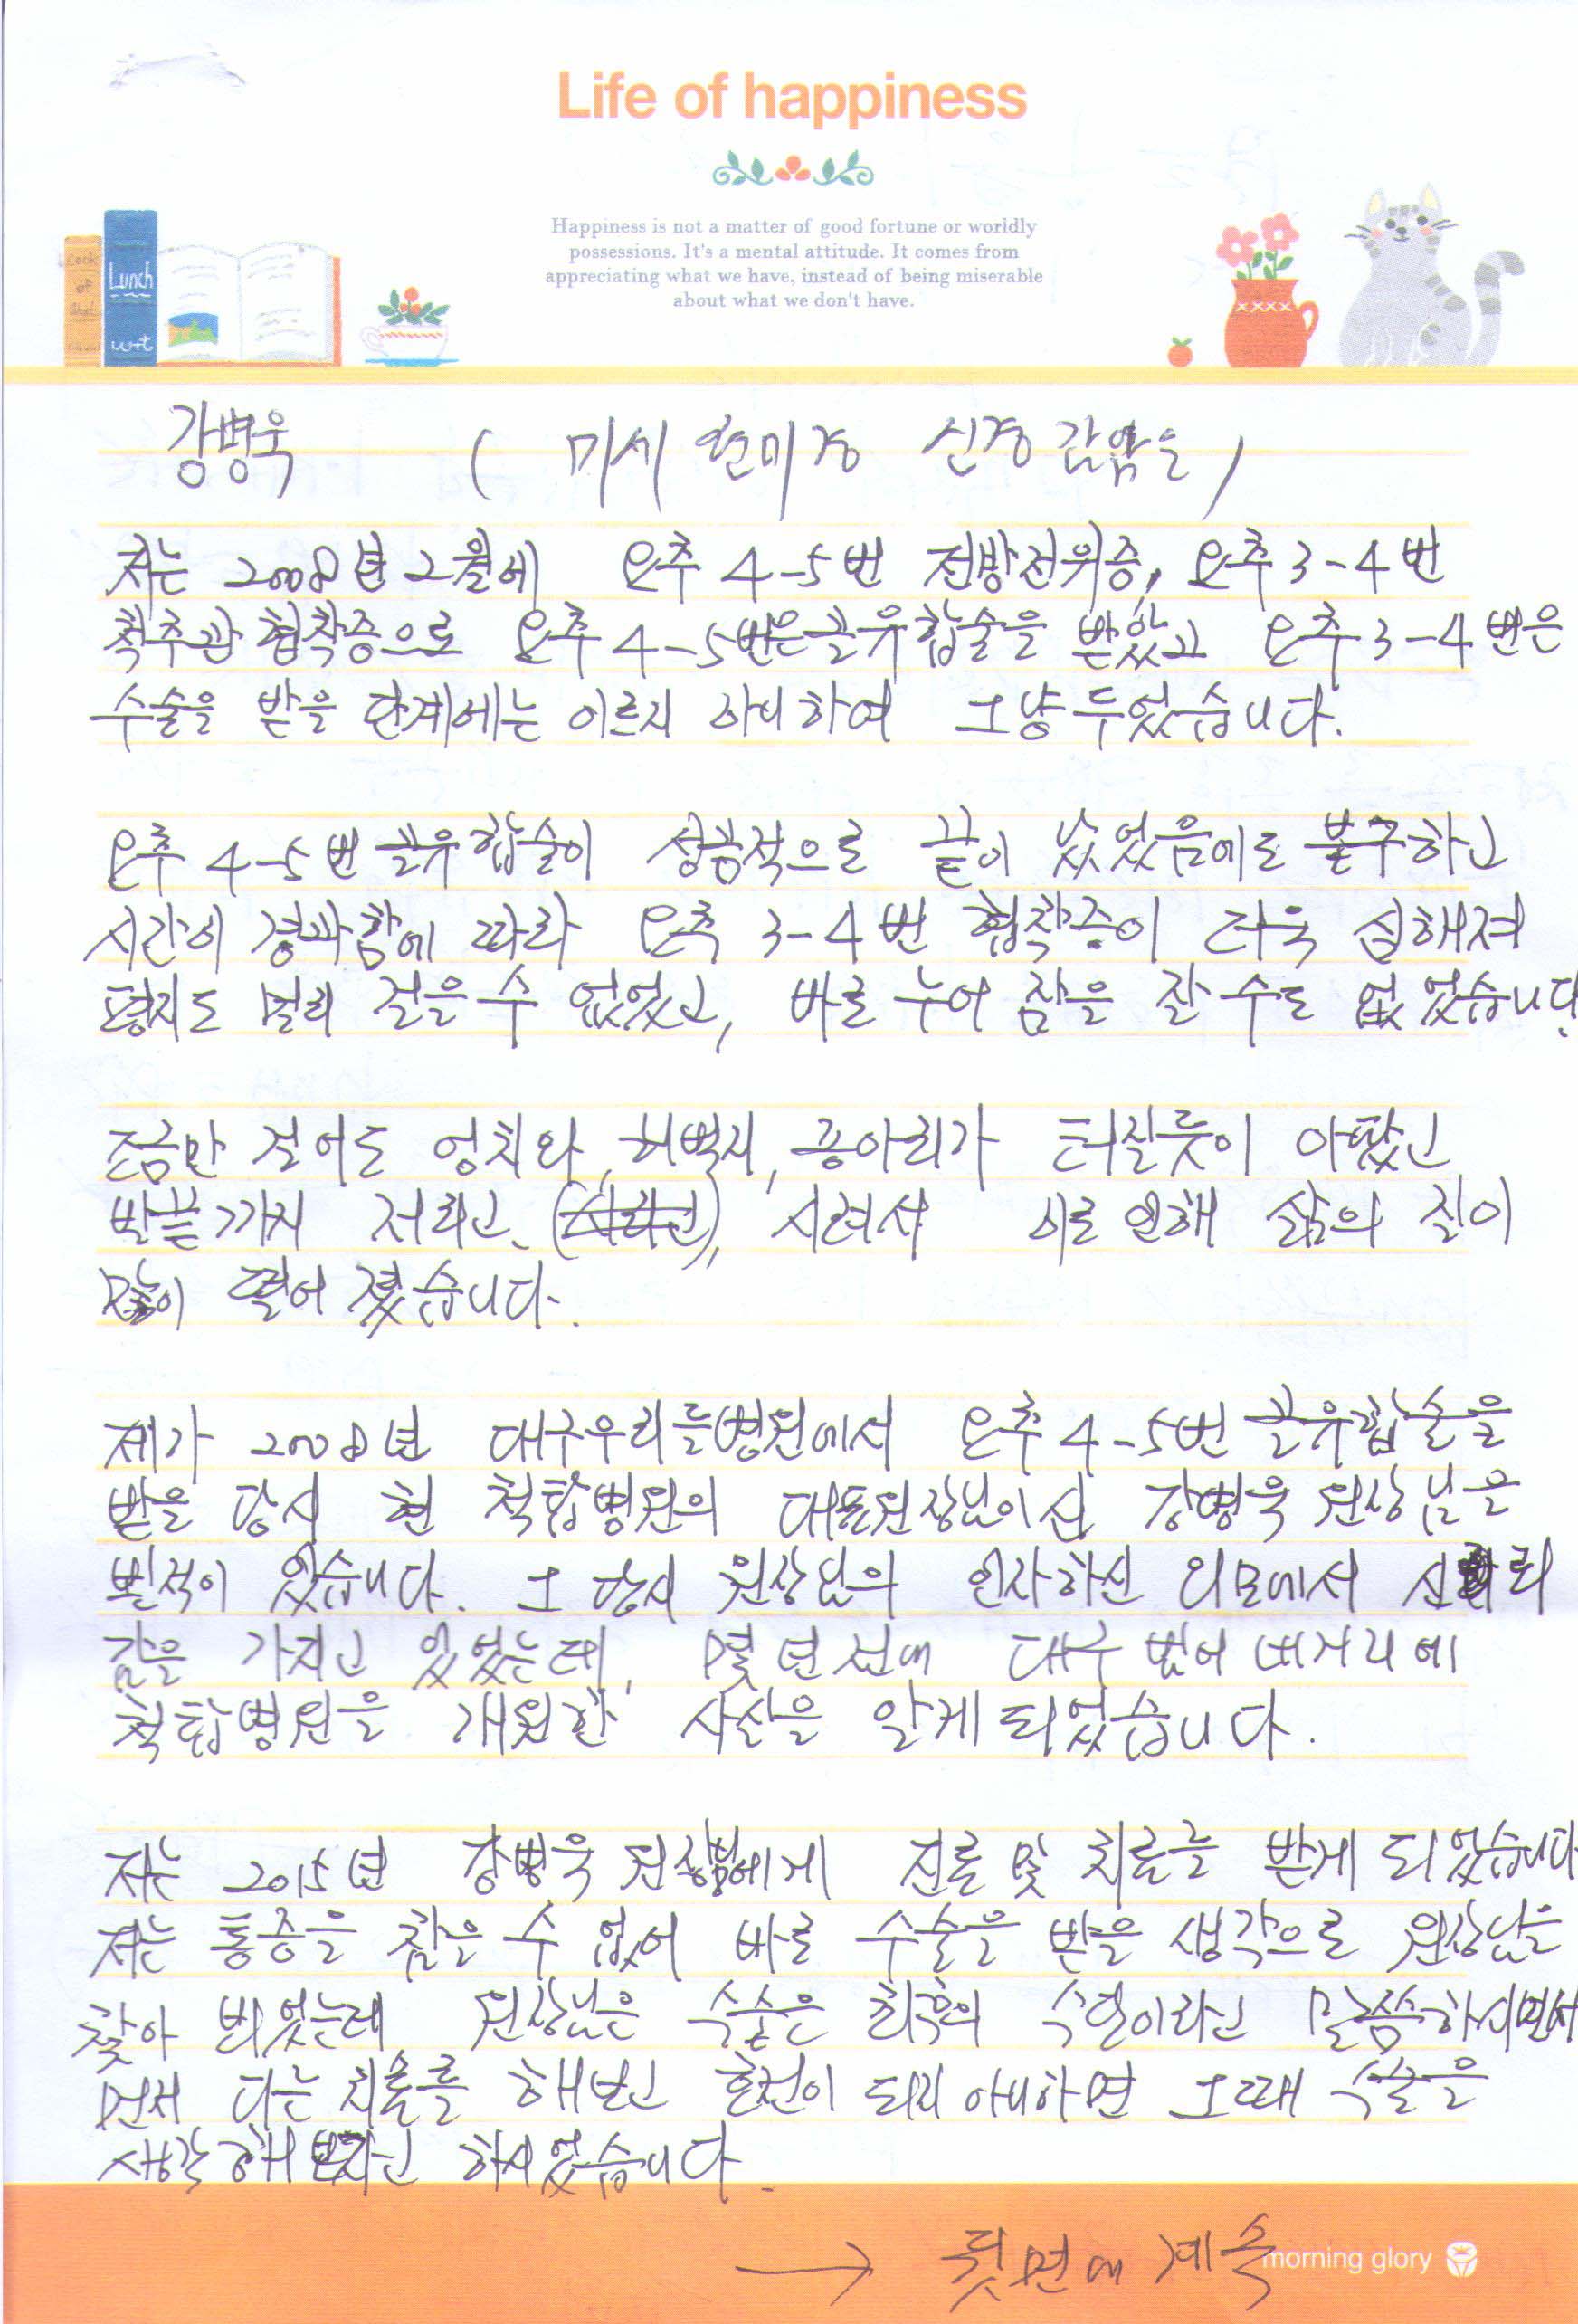 Life of happiness
Happiness is not a matter of good fortune or worldly
possessions. It's a mental attitude. It comes from
appreciating what we have, instead of being miserable
about what we don't have.
Cook
of
Lunch
강병욱 ( 미세 현미경 신경 감압술 )
저는 2008년 2월에 요추 4-5번 전방전위증, 요추 3-4번
척추관 협착증으로 요추 4-5번은 골유합술을 받았고 요추 3-4번은
수술을 받을 단계에는 이르지 아니하여 그냥 두었습니다.
요추 4-5번 골유합술이 성공적으로 끝이 났었음에도 불구하고
시간이 경과함에 따라 요추 3-4번 협착증이 더욱 심해져
평지도 멀리 걸을 수 없었고, 바로 누어 잠을 잘 수도 없었습니다.
조금만 걸어도 엉치와, 허벅지, 종아리가 터질듯이 아팠고
발끝까지 저리고, 시려서 이로 인해 삶의 질이
많이 떨어졌습니다.
제가 2008년 대구우리들병원에서 요추 4-5번 골유합술을
받을 당시 현 척탑병원의 대표원장님이신 강병욱 원장님을
뵌적이 있습니다. 그 당시 원장님의 인자하신 외모에서 신뢰
감을 가지고 있었는데, 몇 년 전에 대구 범어네거리에
척탑병원을 개원한 사실을 알게 되었습니다.
저는 2015년 강병욱 원장님에게 진료 및 치료를 받게 되었습니다
저는 통증을 참을 수 없어 바로 수술을 받을 생각으로 원장님을
찾아 뵈었는데 원장님은 수술은 최후의 수단이라고 말씀하시면서
먼저 다른 치료를 해보고 호전이 되지 아니하면 그때 수술을
생각해 보자고 하시었습니다.
→ 뒷면에 계속
morning glory